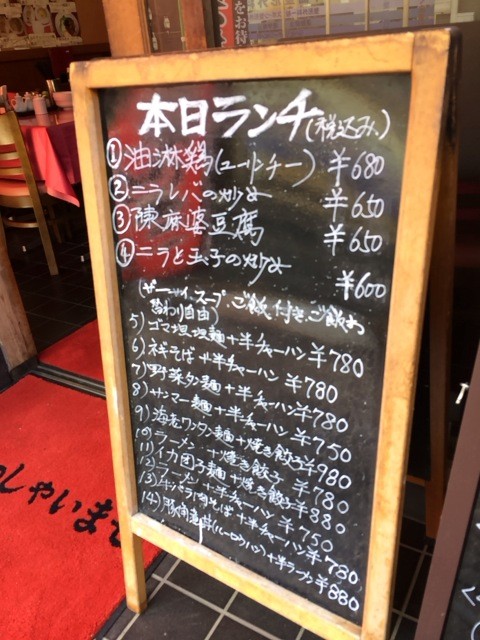 本日ランチ(税込み)
①油淋鶏(ユーリンチー) ¥680
②ニラレバの炒め ¥650
③陳麻婆豆腐 ¥650
④ニラと玉子の炒め ¥600
(ザーサイ、スープ、ご飯、付き、ご飯お
替わり自由)
5)ゴマ坦々麺+半チャーハン¥780
6)ネギそば+半チャーハン¥780
7)野菜タン麺+半チャーハン¥780
8)サンマー麺+半チャーハン¥750
9)海老ワンタン麺+焼き餃子¥980
10)ラーメン+焼き餃子¥780
11)イカ団子麺+焼き餃子¥880
12)ラーメン+半チャーハン¥750
13)牛バラ肉そば+半チャーハン¥780
14)豚角煮丼(ルーロウハン)+半ラーメン¥880
っしゃいませ